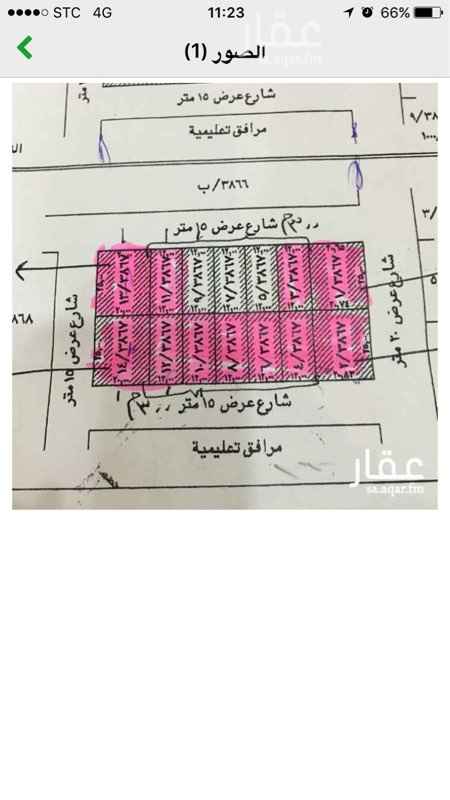 STC 4G 11:23 66%
الصور (1)
عقار
sa.aqar.fm
شارع عرض ١٥ متر
متر
مرافق تعليمية
٩/٣٨
٣٨٦٦/ب
٣/
شارع عرض ١٥ متر
١٣/٣٨٦٧ ١١/٣٨٦٧ ٩/٣٨٦٧ ٧/٣٨٦٧ ٥/٣٨٦٧ ٣/٣٨٦٧ ١/٣٨٦٧
١٤/٣٨٦٧ ١٢/٣٨٦٧ ١٠/٣٨٦٧ ٨/٣٨٦٧ ٦/٣٨٦٧ ٤/٣٨٦٧ ٢/٣٨٦٧
شارع عرض ٢٠ متر
شارع عرض ١٥ متر
٨٦٨
شارع عرض ١٥ متر
مرافق تعليمية
عقار
sa.aqar.fm